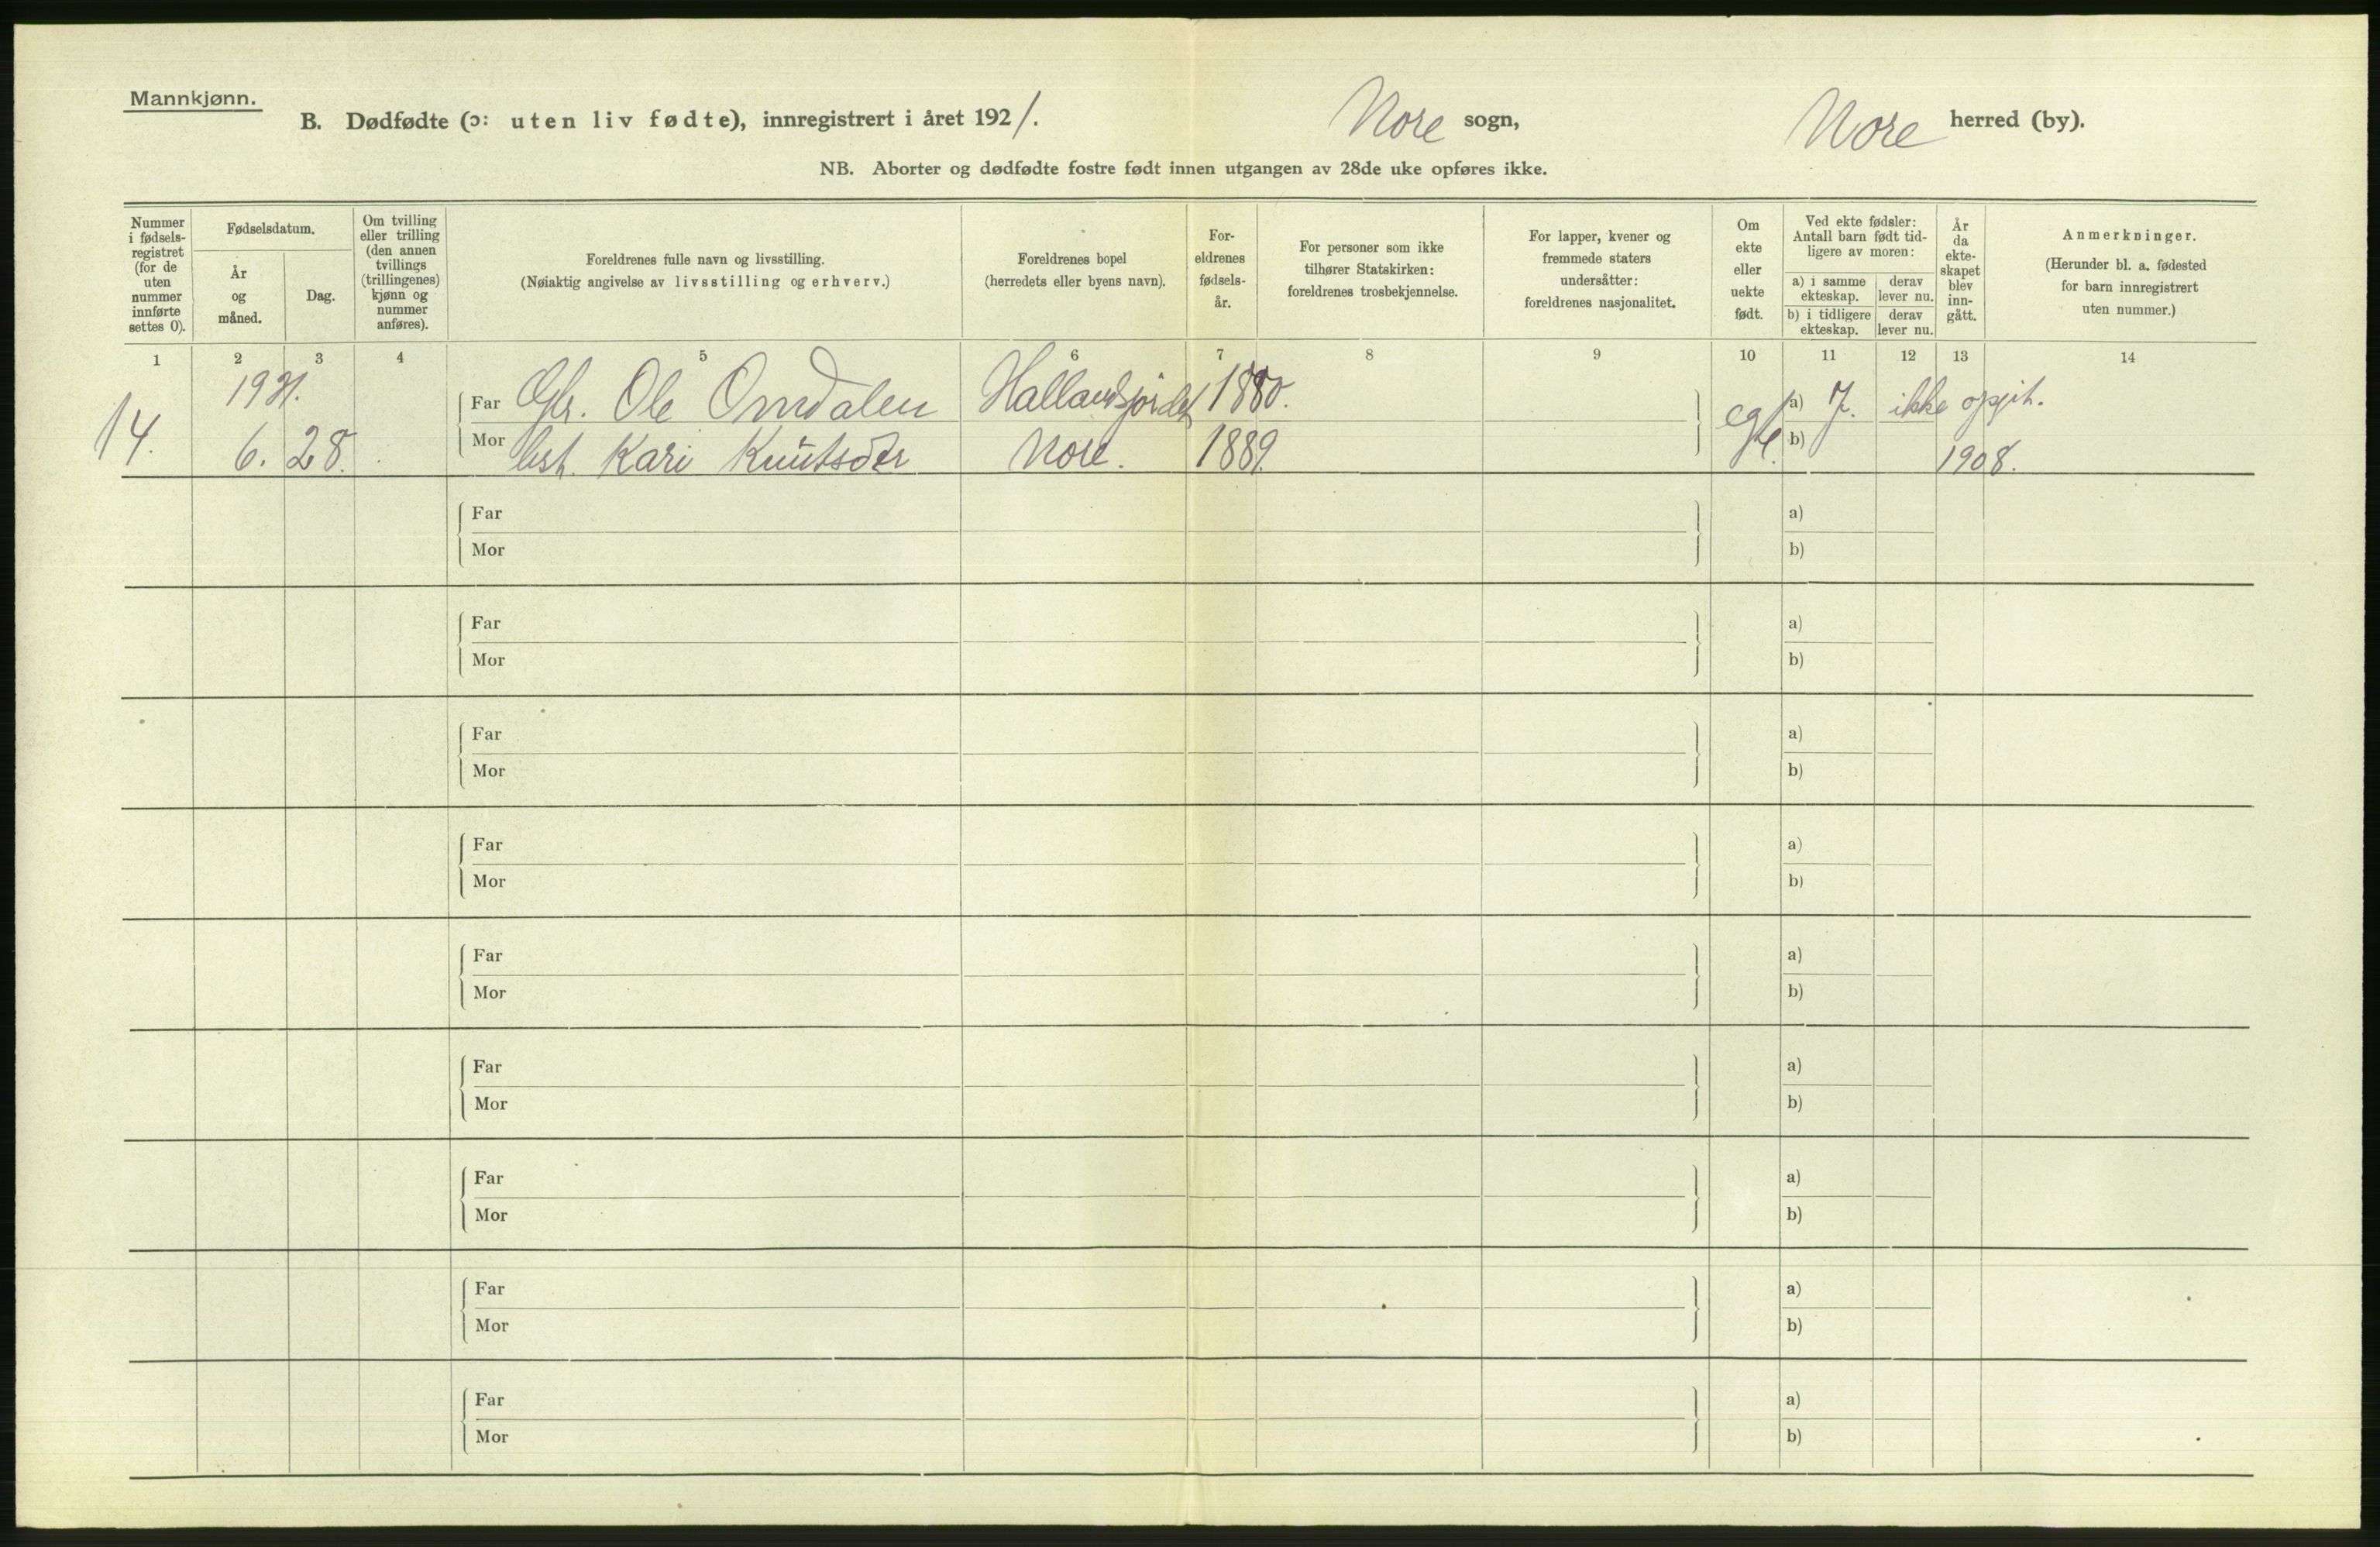 Mannkjønn.
B. Dødfødte (ɔ: uten liv fødte), innregistrert i året 1921. Nore sogn, Nore herred (by).
NB. Aborter og dødfødte fostre født innen utgangen av 28de uke opføres ikke.
Nummer i fødsels-registret (for de uten nummer innførte settes 0).
Fødselsdatum.
År og måned.
Dag.
Om tvilling eller trilling (den annen tvillings (trillingenes) kjønn og nummer anføres).
Foreldrenes fulle navn og livsstilling.
(Nøiaktig angivelse av livsstilling og erhverv.)
Foreldrenes bopel
(herredets eller byens navn).
For-eldrenes fødsels-år.
For personer som ikke tilhører Statskirken: foreldrenes trosbekjennelse.
For lapper, kvener og fremmede staters undersåtter: foreldrenes nasjonalitet.
Om ekte eller uekte født.
Ved ekte fødsler: Antall barn født tid-ligere av moren:
a) i samme ekteskap.
derav lever nu.
b) i tidligere ekteskap.
derav lever nu.
År da ekte-skapet blev inn-gått.
Anmerkninger.
(Herunder bl. a. fødested for barn innregistrert uten nummer.)
1 2 3 4 5 6 7 8 9 10 11 12 13 14
1921.
Far Ole Omdalen 1880. a) 7. ikke
14. 6. 28. Mor Kari Knutsdtr Nore. 1889. b) 1908.
Far a)
Mor b)
Far a)
Mor b)
Far a)
Mor b)
Far a)
Mor b)
Far a)
Mor b)
Far a)
Mor b)
Far a)
Mor b)
Far a)
Mor b)
Far a)
Mor b)